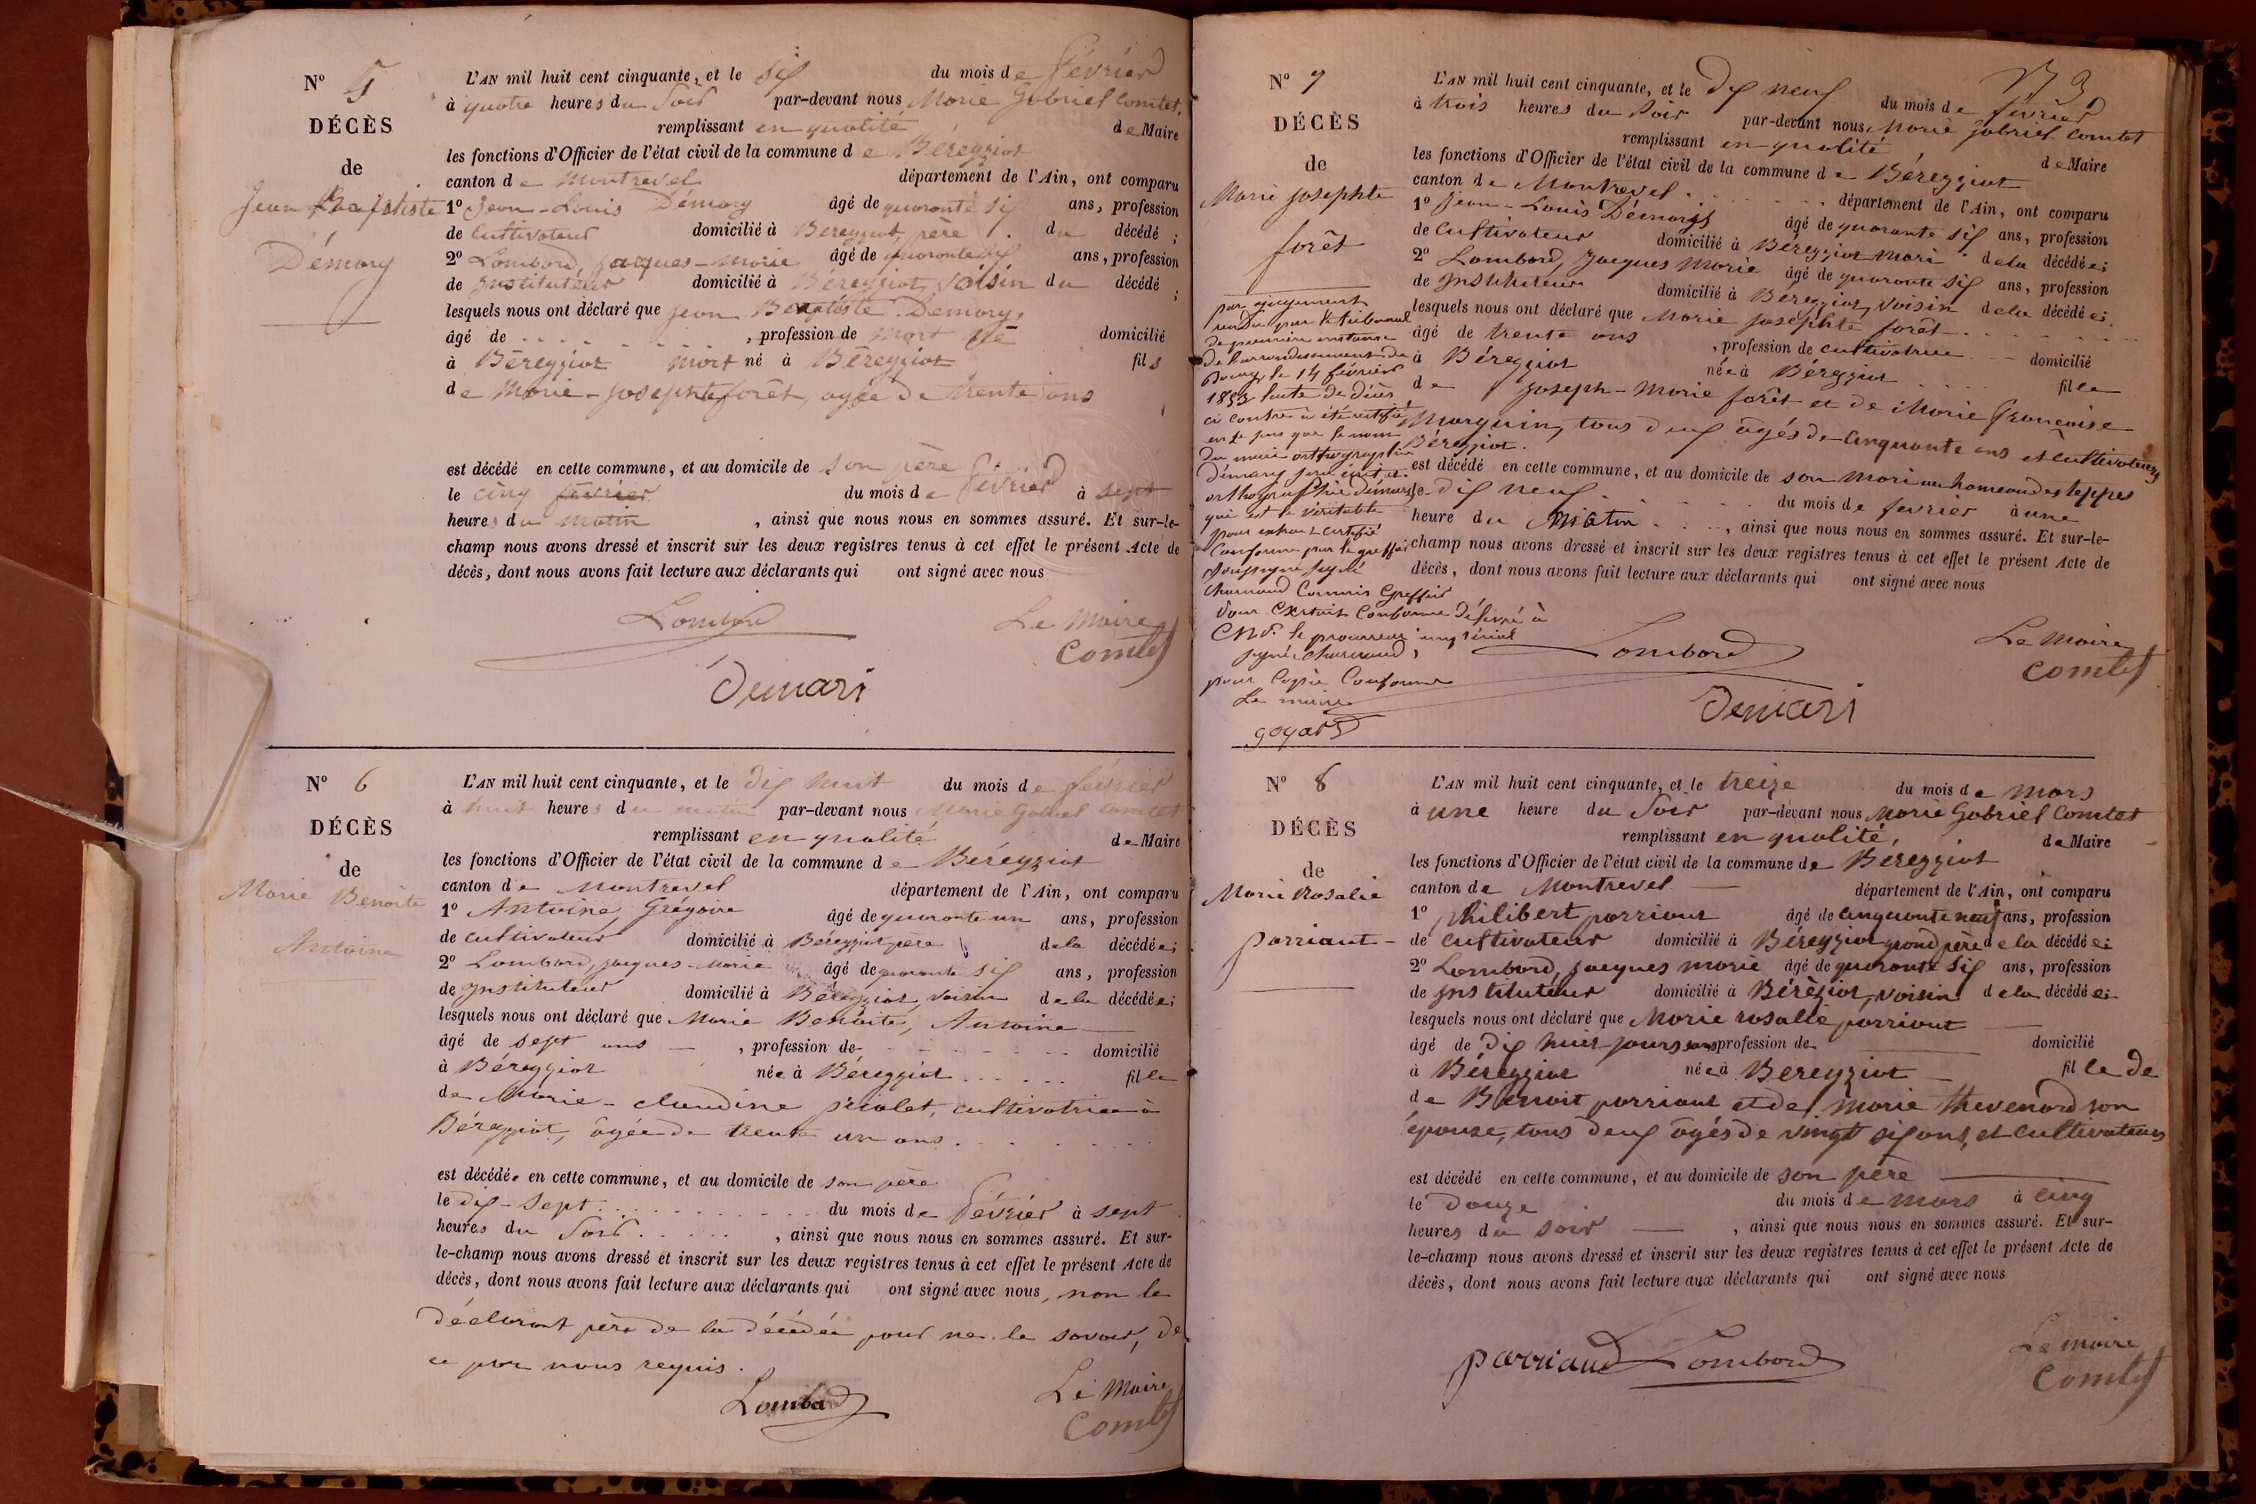 N° 5
DÉCÈS
de
Jean Baptiste
Démary
L'AN mil huit cent cinquante, et le six du mois de février
à quatre heures du Soir par-devant nous Marie Gabriel Comtet,
remplissant en qualité de Maire
les fonctions d'Officier de l'état civil de la commune de Béreyziat
canton de Montrevel département de l'Ain, ont comparu
1° Jean-Louis Démary âgé de quarante six ans, profession
de Cultivateur domicilié à Béreyziat, père du décédé ;
2° Lombard, Jacques-Marie âgé de quarante six ans, profession
de Instituteur domicilié à Béreyziat, voisin du décédé ;
lesquels nous ont déclaré que Jean Baptiste Démary,
âgé de , profession de mort né domicilié
à Béreyziat mort né à Béreyziat fils
de Marie-Josephte forêt, agée de trente ans
est décédé en cette commune, et au domicile de son père
le cinq février du mois de février à sept
heures du matin , ainsi que nous nous en sommes assuré. Et sur-le-
champ nous avons dressé et inscrit sur les deux registres tenus à cet effet le présent Acte de
décès, dont nous avons fait lecture aux déclarants qui ont signé avec nous
Lombard Le Maire
Comtet
Démari
N° 6
DÉCÈS
de
Marie Benoite
Antoine
L'AN mil huit cent cinquante, et le dix huit du mois de février
à huit heures du matin par-devant nous Marie Gabriel Comtet
remplissant en qualité de Maire
les fonctions d'Officier de l'état civil de la commune de Béreyziat
canton de Montrevel département de l'Ain, ont comparu
1° Antoine, Grégoire âgé de quarante un ans, profession
de cultivateur domicilié à Béreyziat père de la décédée ;
2° Lombard, Jacques-Marie âgé de quarante six ans, profession
de Instituteur domicilié à Béreyziat, voisin de la décédée ;
lesquels nous ont déclaré que Marie Benoite, Antoine
âgé de sept ans , profession de domicilié
à Béreyziat née à Béreyziat fille
de Marie-claudine cultivatrice à
Béreyziat, âgée de trente un ans.
est décédée en cette commune, et au domicile de son père
le dix-sept du mois de février à sept
heures du Soir , ainsi que nous nous en sommes assuré. Et sur-
le-champ nous avons dressé et inscrit sur les deux registres tenus à cet effet le présent Acte de
décès, dont nous avons fait lecture aux déclarants qui ont signé avec nous, non le
déclarant père de la décédée pour ne le savoir, de
ce par nous requis.
Lombard Le Maire
Comtet
173
N° 7
DÉCÈS
de
Marie Josephte
forêt
par jugement
rendu par le tribunal
de première instance
de l'arrondissement de
Bourg, le 14 février
1853 l'acte de décès
ci contre a été rectifié
en ce sens que le nom
du mari orthographié
démary sera
orthographié démari
qui est le véritable
pour extrait certifié
conforme par le greffier
soussigné signé
Charnaud Commis Greffier
Pour Extrait Conforme délivré à
le procureur impérial
signé Charnaud,
pour Copie Conforme
Le maire
goyard
L'AN mil huit cent cinquante, et le dix neuf du mois de février
à trois heures du soir par-devant nous Marie Gabriel Comtet
remplissant en qualité de Maire
les fonctions d'Officier de l'état civil de la commune de Béreyziat
canton de Montrevel département de l'Ain, ont comparu
1° Jean-Louis Démary âgé de quarante six ans, profession
de Cultivateur domicilié à Béreyziat mari de la décédée ;
2° Lombard, Jacques Marie âgé de quarante six ans, profession
de Instituteur domicilié à Béreyziat, voisin de la décédée ;
lesquels nous ont déclaré que Marie Josephte forêt
âgé de trente ans , profession de cultivatrice domicilié
à Béreyziat née à Béreyziat fille
de Joseph-Marie forêt et de Marie Françoise
Marguin, tous deux âgés de cinquante ans et cultivateurs
Béreyziat.
est décédé en cette commune, et au domicile de son mari au hameau des teppes
le dix neuf du mois de février à une
heure du Matin , ainsi que nous nous en sommes assuré. Et sur-le-
champ nous avons dressé et inscrit sur les deux registres tenus à cet effet le présent Acte de
décès, dont nous avons fait lecture aux déclarants qui ont signé avec nous
Lombard Le Maire
Comtet
Démari
N° 8
DÉCÈS
de
Marie Rosalie
parriaut
L'AN mil huit cent cinquante, et le treize du mois de mars
à une heure du Soir par-devant nous Marie Gabriel Comtet
remplissant en qualité, de Maire
les fonctions d'Officier de l'état civil de la commune de Béreyziat
canton de Montrevel département de l'Ain, ont comparu
1° philibert parriaut âgé de cinquante neuf ans, profession
de cultivateur domicilié à Béreyziat grand père de la décédée ;
2° Lombard, Jacques Marie âgé de quarante six ans, profession
de Instituteur domicilié à Béreyziat, voisin de la décédée ;
lesquels nous ont déclaré que Marie rosalie parriaut
âgé de dix huit jours sans profession de domicilié
à Béreyziat née à Béreyziat fille de
de Benoit parriaut et de Marie thevenard son
épouse, tous deux âgés de vingt six ans, et cultivateurs
est décédé en cette commune, et au domicile de son père
le Douze du mois de mars à cinq
heures du soir , ainsi que nous nous en sommes assuré. Et sur-
le-champ nous avons dressé et inscrit sur les deux registres tenus à cet effet le présent Acte de
décès, dont nous avons fait lecture aux déclarants qui ont signé avec nous
parriaud Lombard Le Maire
Comtet